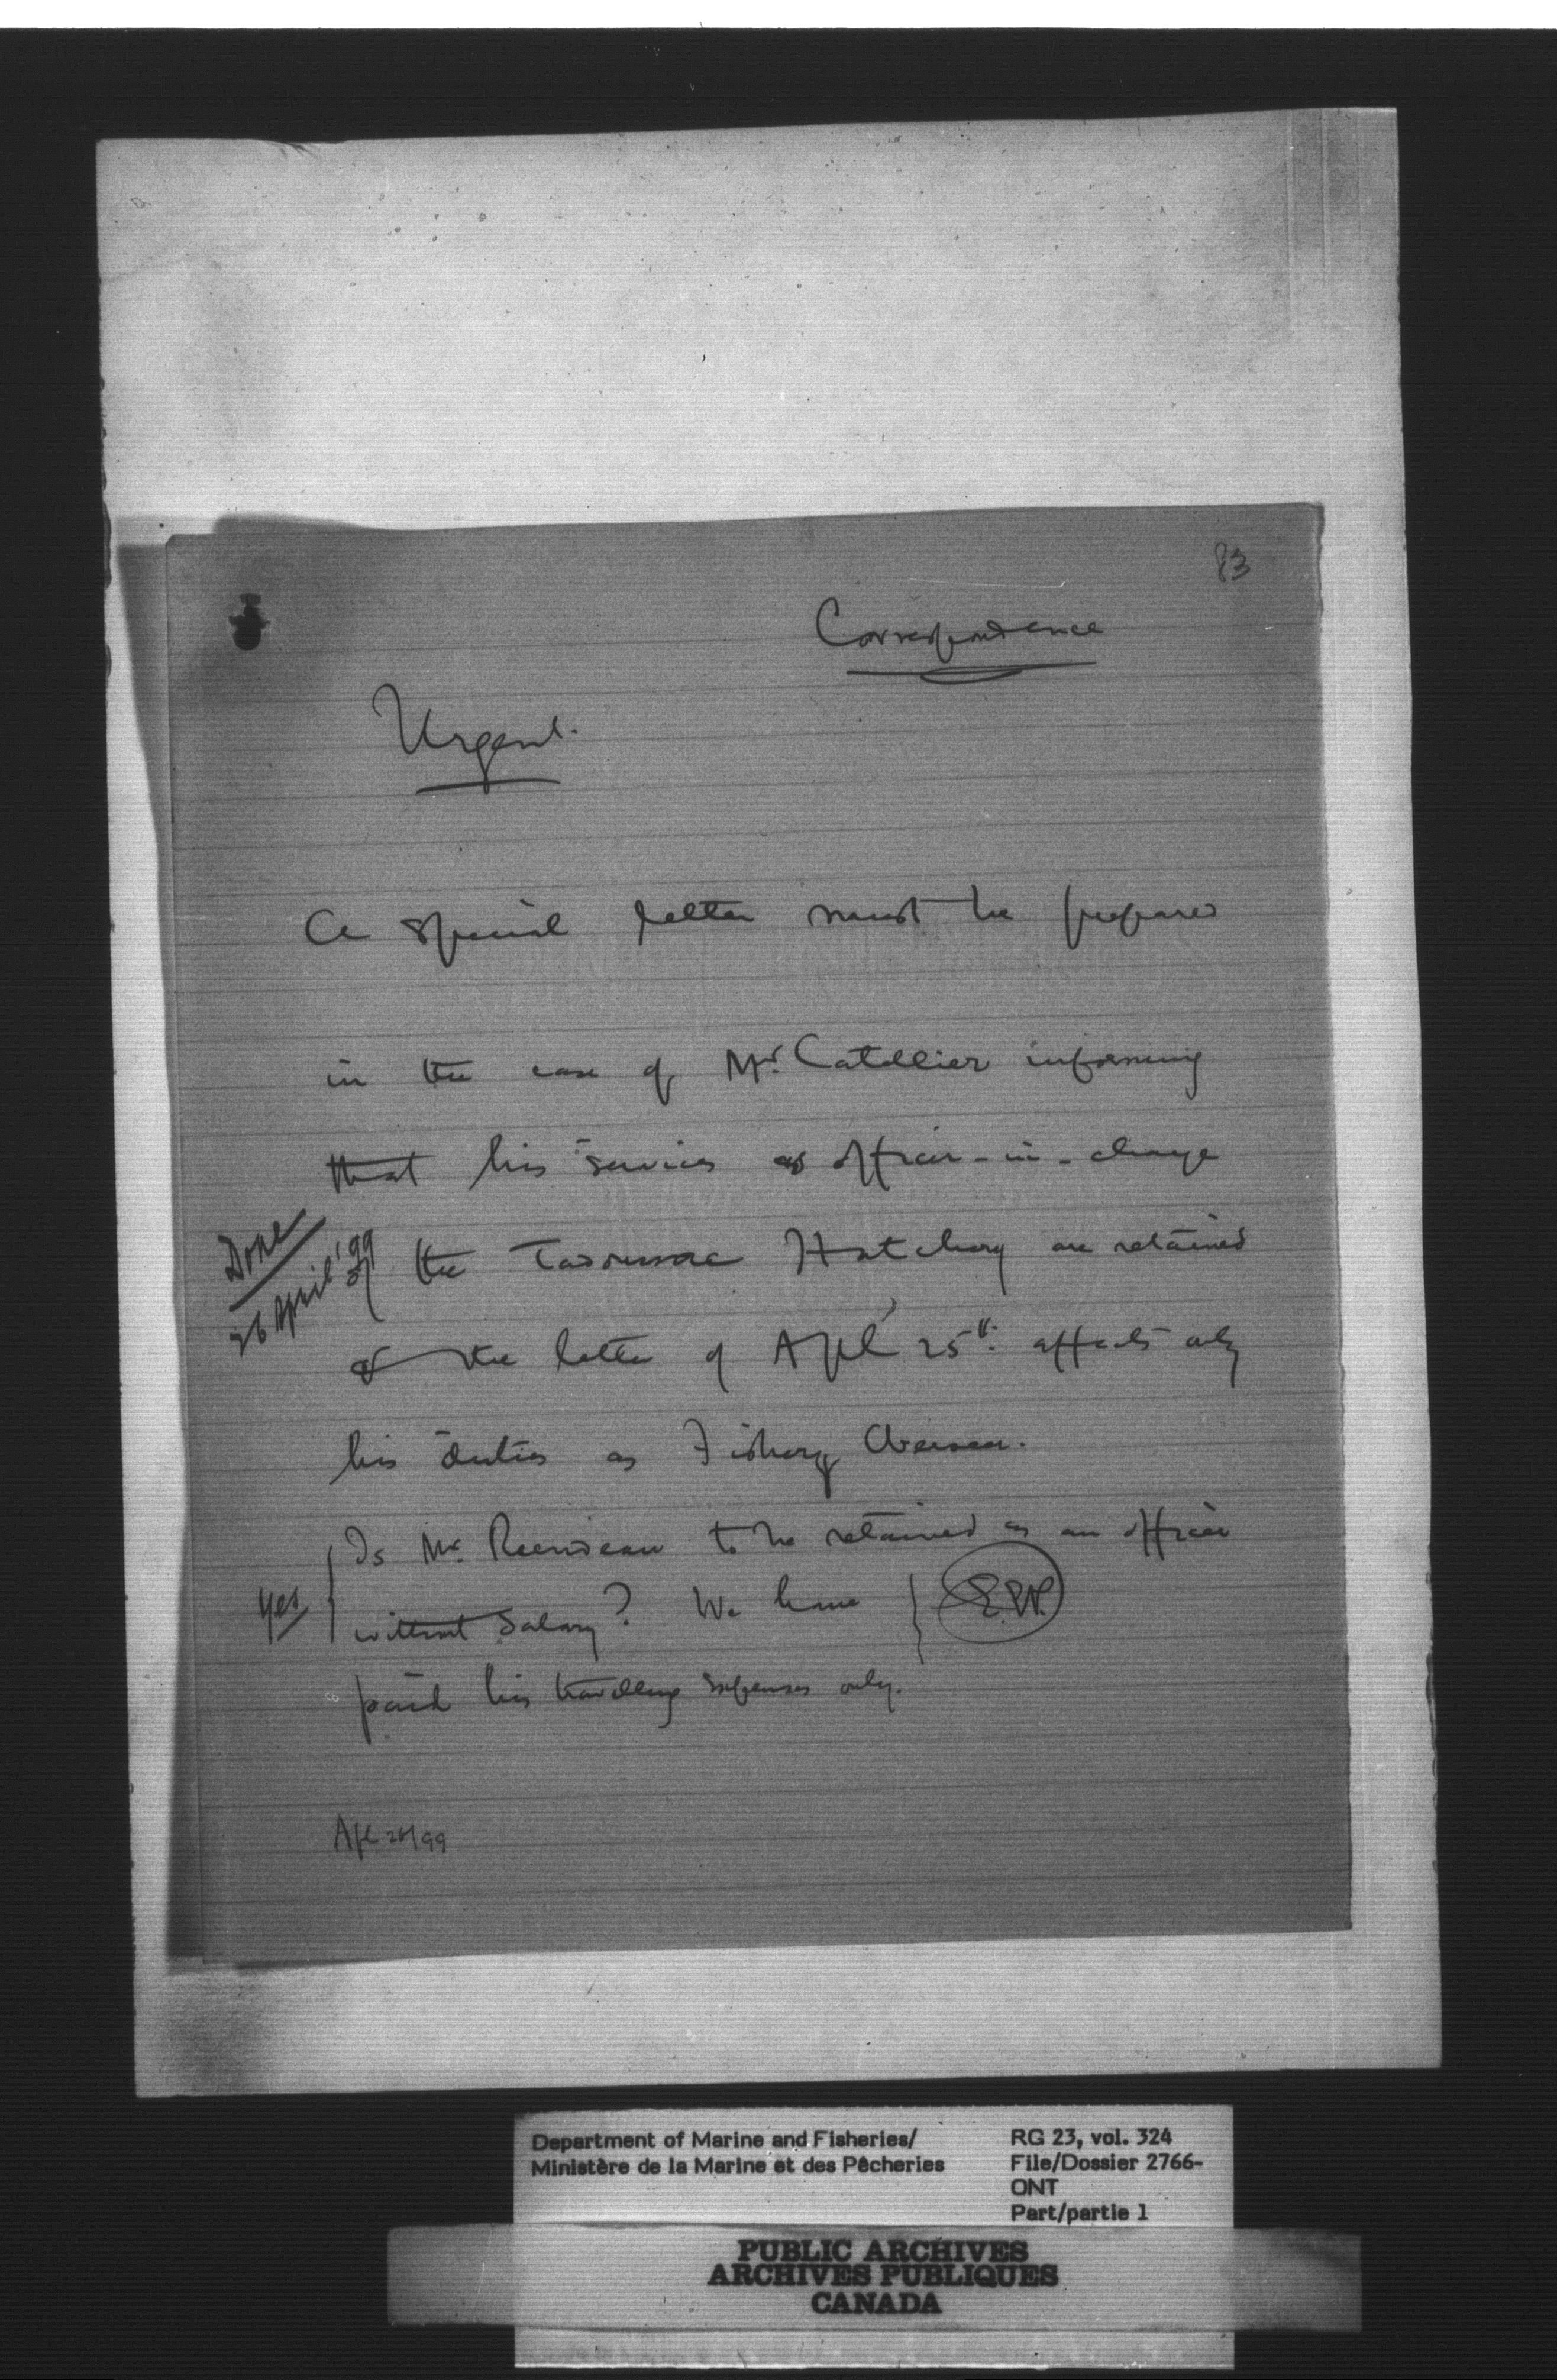 83
Correspondence
Urgent.
A special letter must be prepared
in the case of Mr. Catellier informing
that his services as officer-in-charge
of the Tadoussac Hatchery are retained
& the letter of Apl 25th affects only
his duties as Fishery Overseer.
Done
26 April '99
Is Mr. to be retained as an officer
without Salary? We have
paid his travelling expenses only.
Yes
E.E.P.
Apl 26/99
Department of Marine and Fisheries/
Ministère de la Marine et des Pêcheries
RG 23, vol. 324
File/Dossier 2766-
ONT
Part/partie 1
PUBLIC ARCHIVES
ARCHIVES PUBLIQUES
CANADA